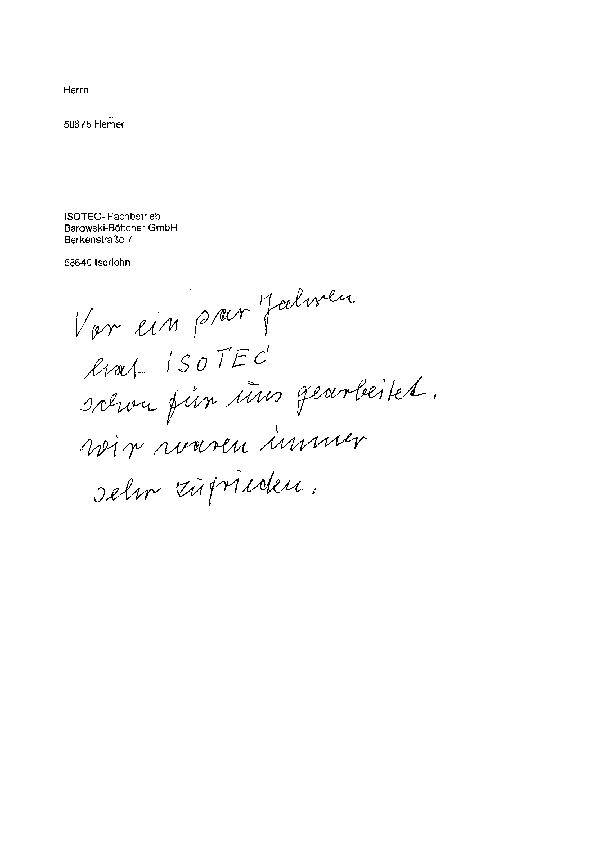 Herrn
58675 Hemer
ISOTEC-Fachbetrieb
Barowski-Böttcher GmbH
Berkenstraße 7
58640 Iserlohn
Vor ein par Jahren
hat ISOTEC
schon für uns gearbeitet.
wir waren immer
sehr zufrieden.